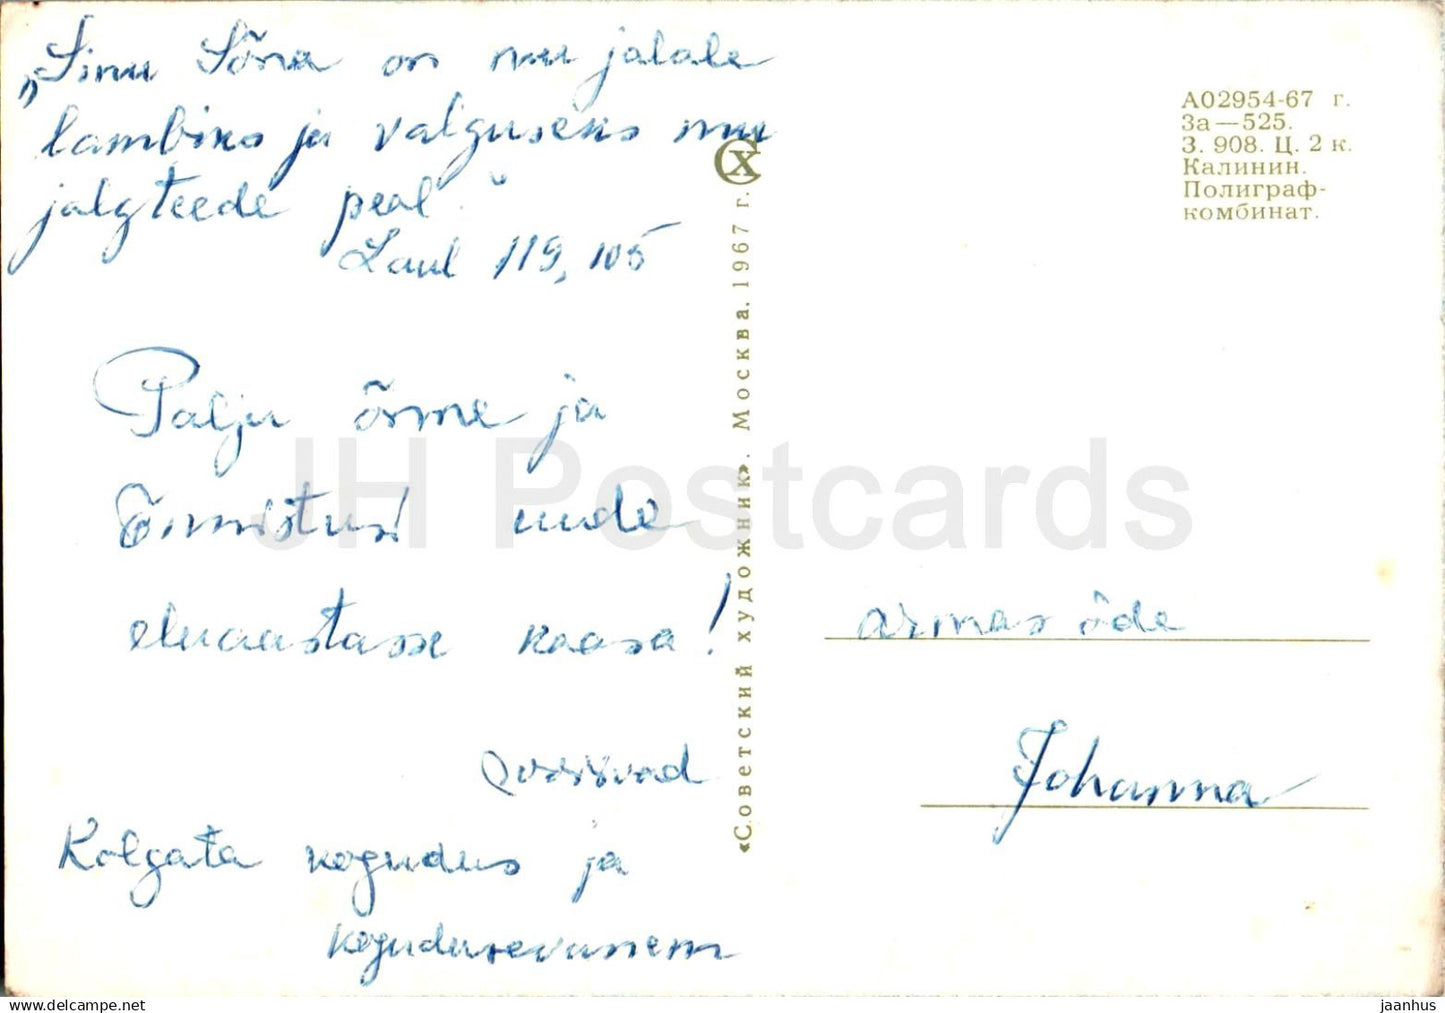 „Sinu Sõna on mu jalale
lambiks ja valguseks mu
jalgteede peal."
Laul 119, 105
Palju õnne ja
Õnnistusi uude
eluaastasse kaasa!
soovivad
Kolgata kogudus ja
kogudusevanem
«Советский художник». Москва. 1967 г.
СХ
А02954-67 г.
За—525.
З. 908. Ц. 2 к.
Калинин.
Полиграф-
комбинат.
armas õde
Johanna
JH Postcards
www.hippostcard.com
jaanhus